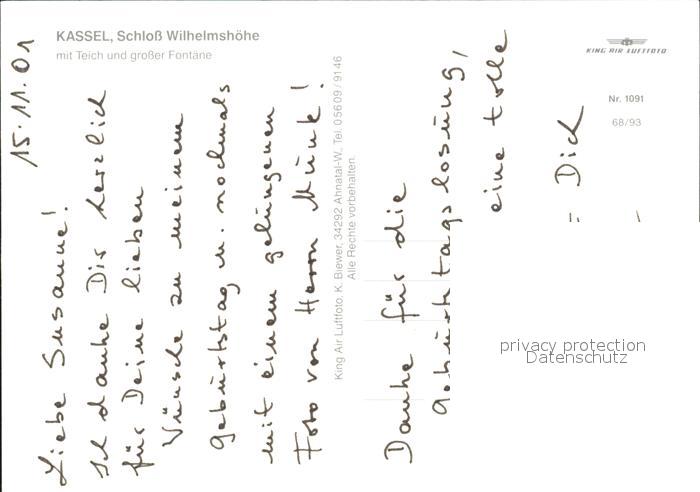 KASSEL, Schloß Wilhelmshöhe
mit Teich und großer Fontäne
15.11.01
Liebe Susanne!
Ich danke Dir herzlich
für Deine lieben
Wünsche zu meinem
Geburtstag u. nochmals
mit einem gelungenen
Foto von Herrn Munk!
King Air Luftfoto: K. Biewer, 34292 Ahnatal-W., Tel. 05609/9146
Alle Rechte vorbehalten.
Danke für die
Geburtstagslosung,
eine tolle
= Dick
KING AIR LUFTFOTO
Nr. 1091
68/93
privacy protection
Datenschutz